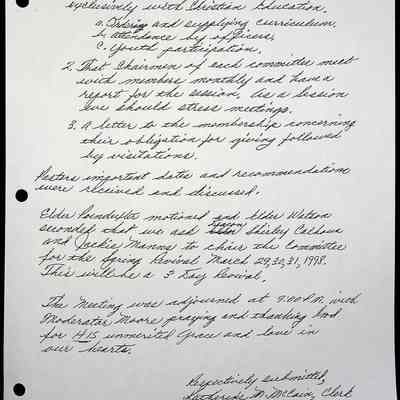 exclusively with Christian Education.
a. Ordering and supplying curriculum.
b. attendance by officers,
c. youth participation.
2. That Chairmen of each committee meet
with members monthly and have a
report for the session. As a session
we should stress meetings.
3. A letter to the membership concerning
their obligation for giving followed
by visitations.
Pastors important dates and recommendations
were received and discussed.
Elder Poindexter motioned and Elder Watson
seconded that we ask Deacon Shirley Calhoun
and Jackie Manns to chair the Committee
for the Spring Revival March 29, 30, 31, 1998.
This will be a 3 Day Revival.
The Meeting was adjourned at 9:00 P.M. with
Moderator Moore praying and thanking God
for HIS unmerited Grace and love in
our hearts.
Respectively submitted,
Katherine N. McCain, Clerk